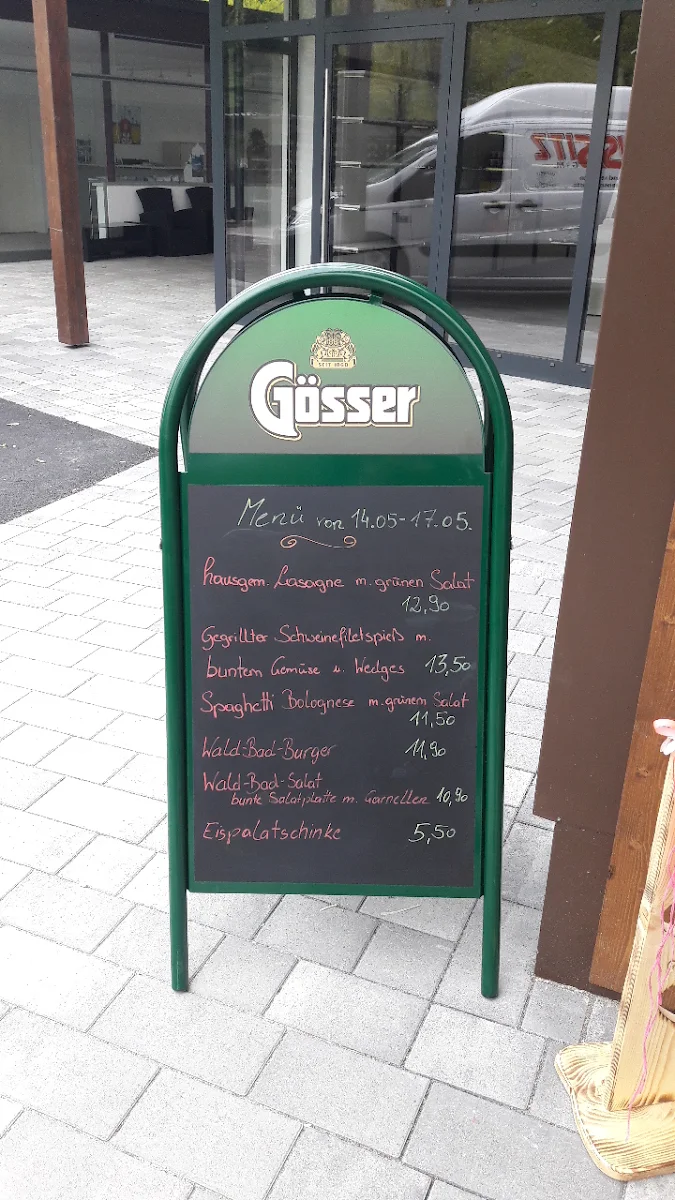 SEIT 1860
Gösser
Menü von 14.05-17.05.
hausgem. Lasagne m. grünen Salat
12,90
Gegrillter Schweinefiletspieß m.
buntem Gemüse u. Wedges 13,50
Spaghetti Bolognese m. grünem Salat
11,50
Wald-Bad-Burger 11,90
Wald-Bad-Salat
bunte Salatplatte m. Garnellen 10,90
Eispalatschinke 5,50